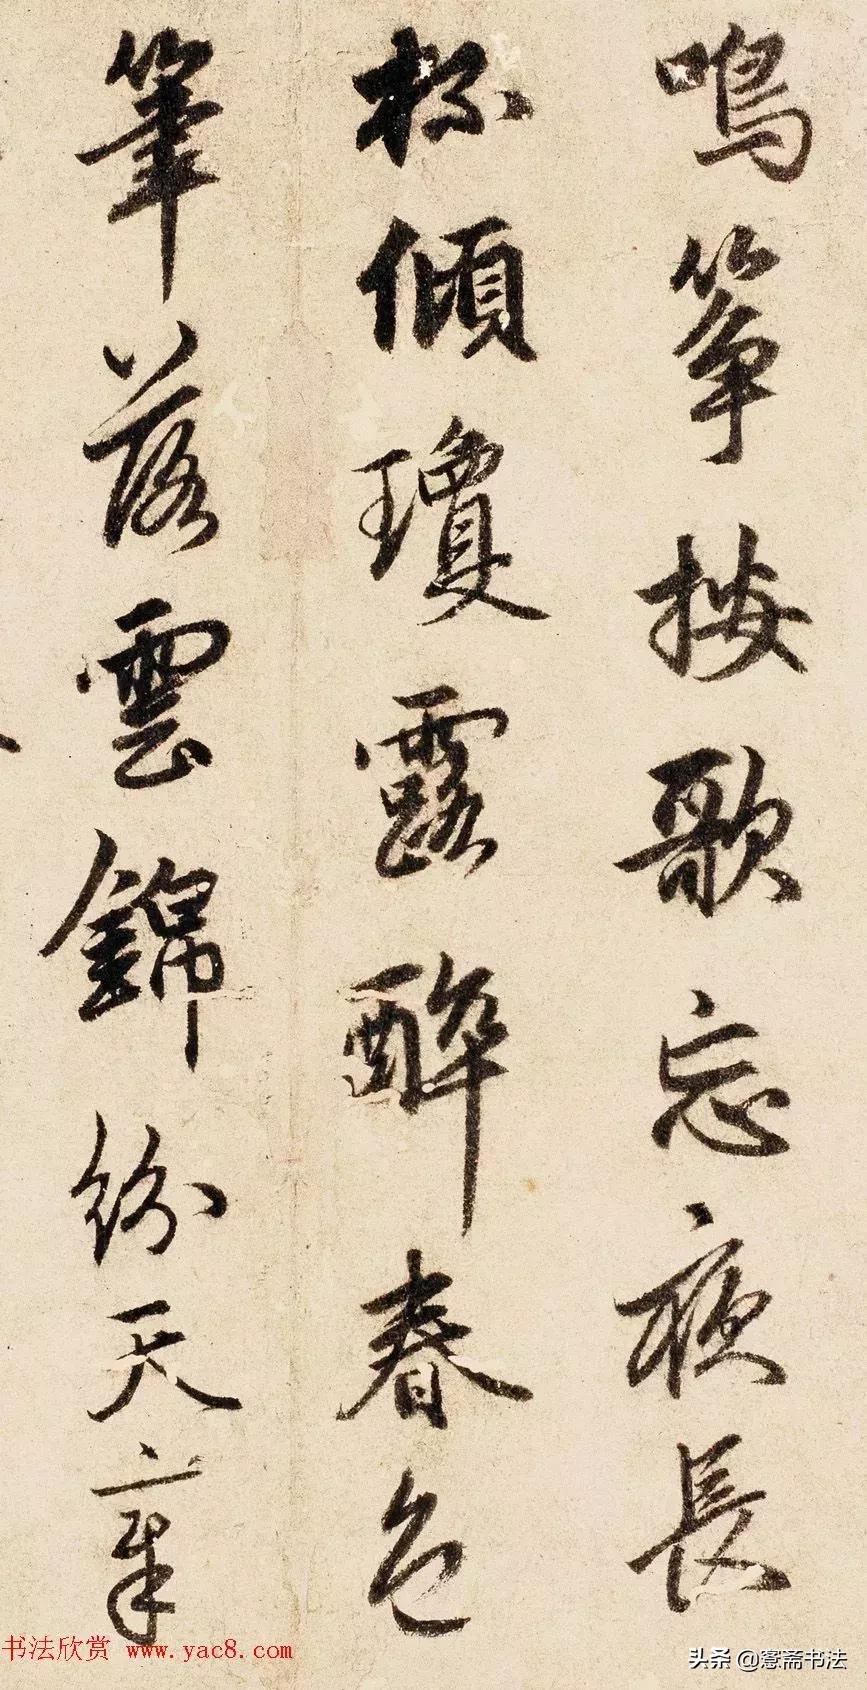 鳴箏按歌忘夜長
杯傾瓊露醉春色
筆落雲錦紛天章
书法欣赏 www.yac8.com
头条 @窓斋书法